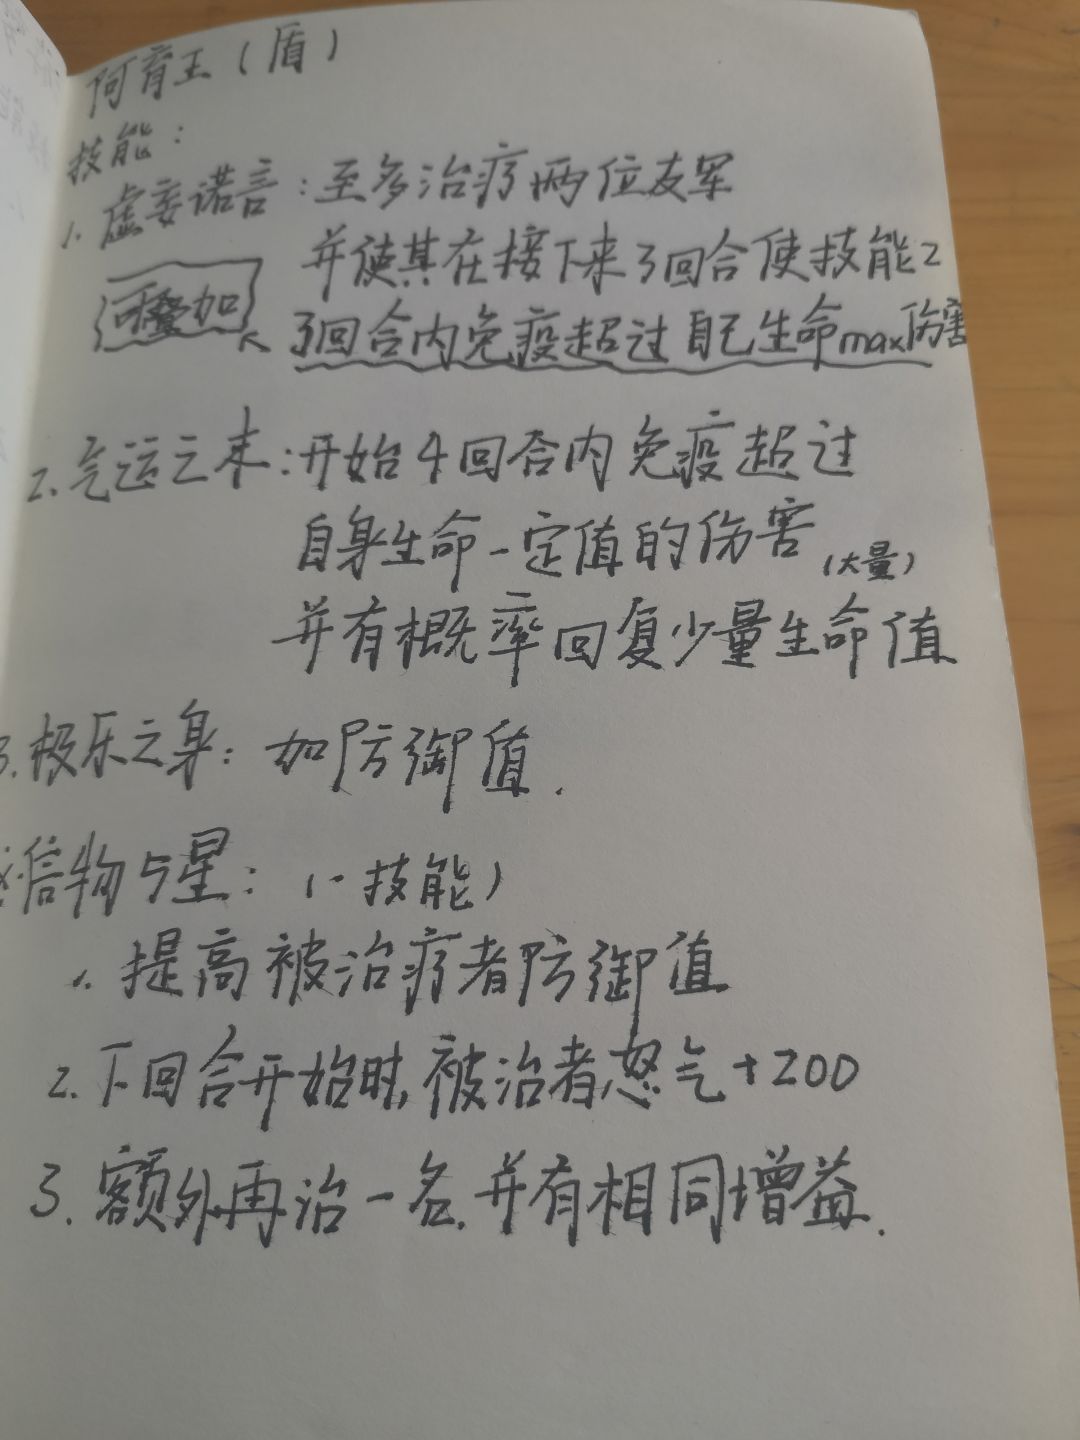 阿育王（盾）
技能：
1. 虚妄诺言：至多治疗两位友军
并使其在接下来3回合使技能2
可叠加
3回合内免疫超过自己生命max伤害
2. 气运之末：开始4回合内免疫超过
自身生命一定值的伤害（大量）
并有概率回复少量生命值
3. 极乐之身：加防御值.
信物与星：（一技能）
1. 提高被治疗者防御值
2. 下回合开始时，被治者怒气+200
3. 额外再治一名，并有相同增益.